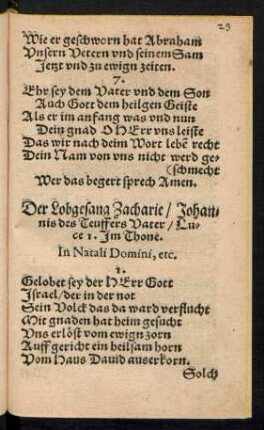 29
Wie er geschworn hat Abraham
Vnsern Vetern vnd seinem Sam
Jetzt vnd zu ewign zeiten.
7.
Ehr sey dem Vater vnd dem Son
Auch Gott dem heilgen Geiste
Als er im anfang was vnd nun
Dein gnad O HErr vns leiste
Das wir nach deim Wort lebē recht
Dein Nam von vns nicht werd ge-
(schmecht
Wer das begert sprech Amen.
Der Lobgesang Zacharie / Johan-
nis des Teuffers Vater / Lu-
ce 1. Im Thone.
In Natali Domini, etc.
1.
Gelobet sey der HErr Gott
Israel / der in der not
Sein Volck das da ward verflucht
Mit gnaden hat heim gesucht
Vns erlöst vom ewign zorn
Auff gericht ein heilsam horn
Vom Haus Dauid auserkorn.
Solch